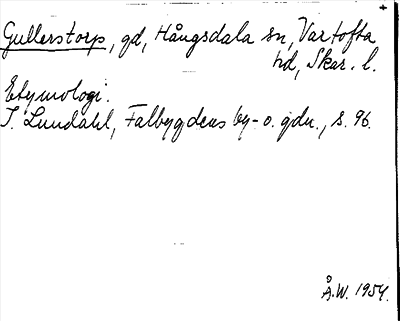 Gullerstorp, gd, Hångsdala sn, Vartofta
hd, Skar. l.
Etymologi.
I. Lundahl, Falbygdens by- o. gdn., s. 96.
Å.W. 1954.